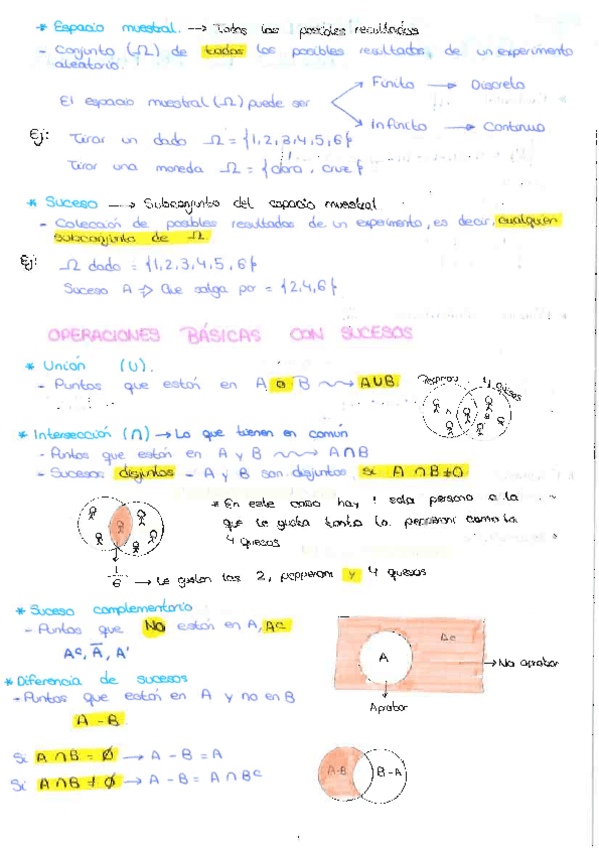 * Espacio muestral. --> Todos los posibles resultados
- Conjunto (Ω) de todos los posibles resultados, de un experimento
aleatorio.
Finito → Discreto
El espacio muestral (Ω) puede ser
Infinito → Continuo
Ej: Tirar un dado Ω = {1,2,3,4,5,6}
Tirar una moneda Ω = {cara, cruz}
* Suceso --> Subconjunto del espacio muestral
- Colección de posibles resultados de un experimento, es decir, cualquier
subconjunto de Ω.
Ej: Ω dado = {1,2,3,4,5,6}
Suceso A => Que salga par = {2,4,6}
OPERACIONES BÁSICAS CON SUCESOS
* Unión (U).
- Puntos que están en A o B ~~> AUB
Pepperoni 4 quesos
* Intersección (∩) → Lo que tienen en común
- Puntos que están en A y B ~~> A∩B
- Sucesos disjuntos - A y B son disjuntos, si A ∩ B ≠ 0
* En este caso hay 1 sola persona a la
que le gusta tanto la pepperoni como la
4 quesos
1/6 → Le gustan las 2, pepperoni y 4 quesos
* Suceso complementario
- Puntos que No están en A, Ac
Aᶜ, A̅, A'
Ac
A
→ No aprobar
Aprobar
* Diferencia de sucesos
- Puntos que están en A y no en B
A - B
Si A ∩ B = Ø → A - B = A
Si A ∩ B ≠ Ø → A - B = A ∩ Bᶜ
A-B B-A